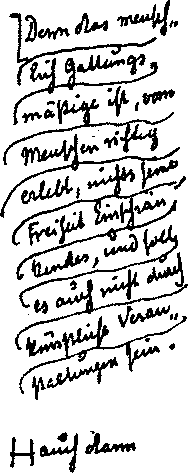 Denn das mensch„
lich Gattungs„
mäßige ist, vom
Menschen richtig
erlebt, nichts seine
Freiheit Einschrän„
kendes, und soll
es auch nicht durch
künstliche Veran„
staltungen sein.
Hauch dann